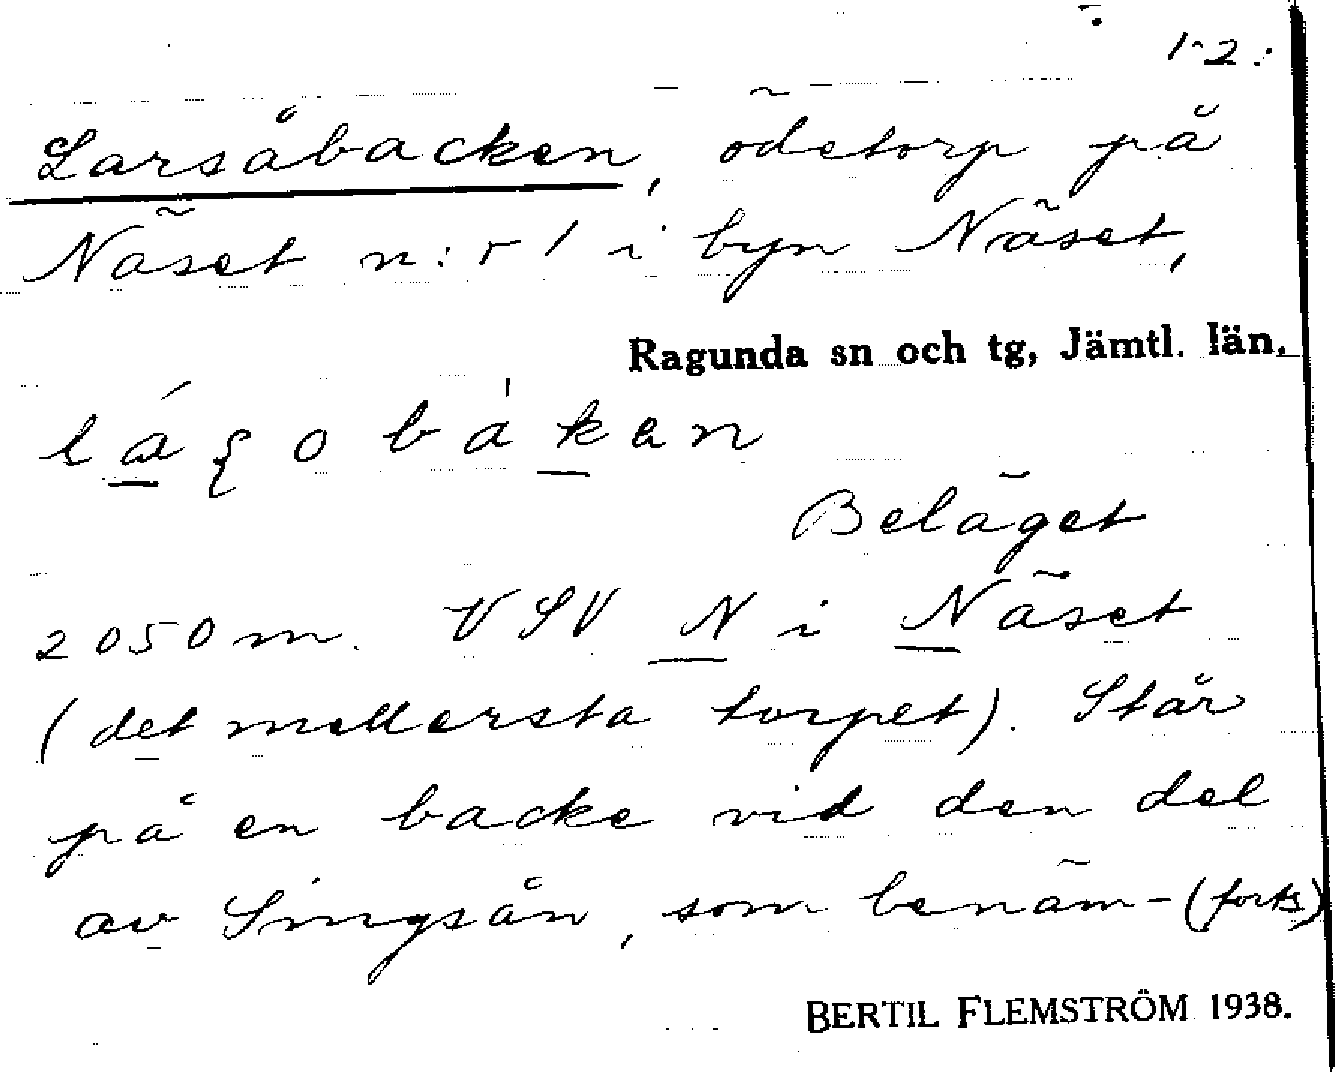 1-2:
Larsåbacken, ödetorp på
Näset n:r 1 i byn Näset,
Ragunda sn och tg, Jämtl. län.
Beläget
2050 m. VSV N i Näset
(det mellersta torpet). Står
på en backe vid den del
av Singsån, som benäm- (forts)
BERTIL FLEMSTRÖM 1938.